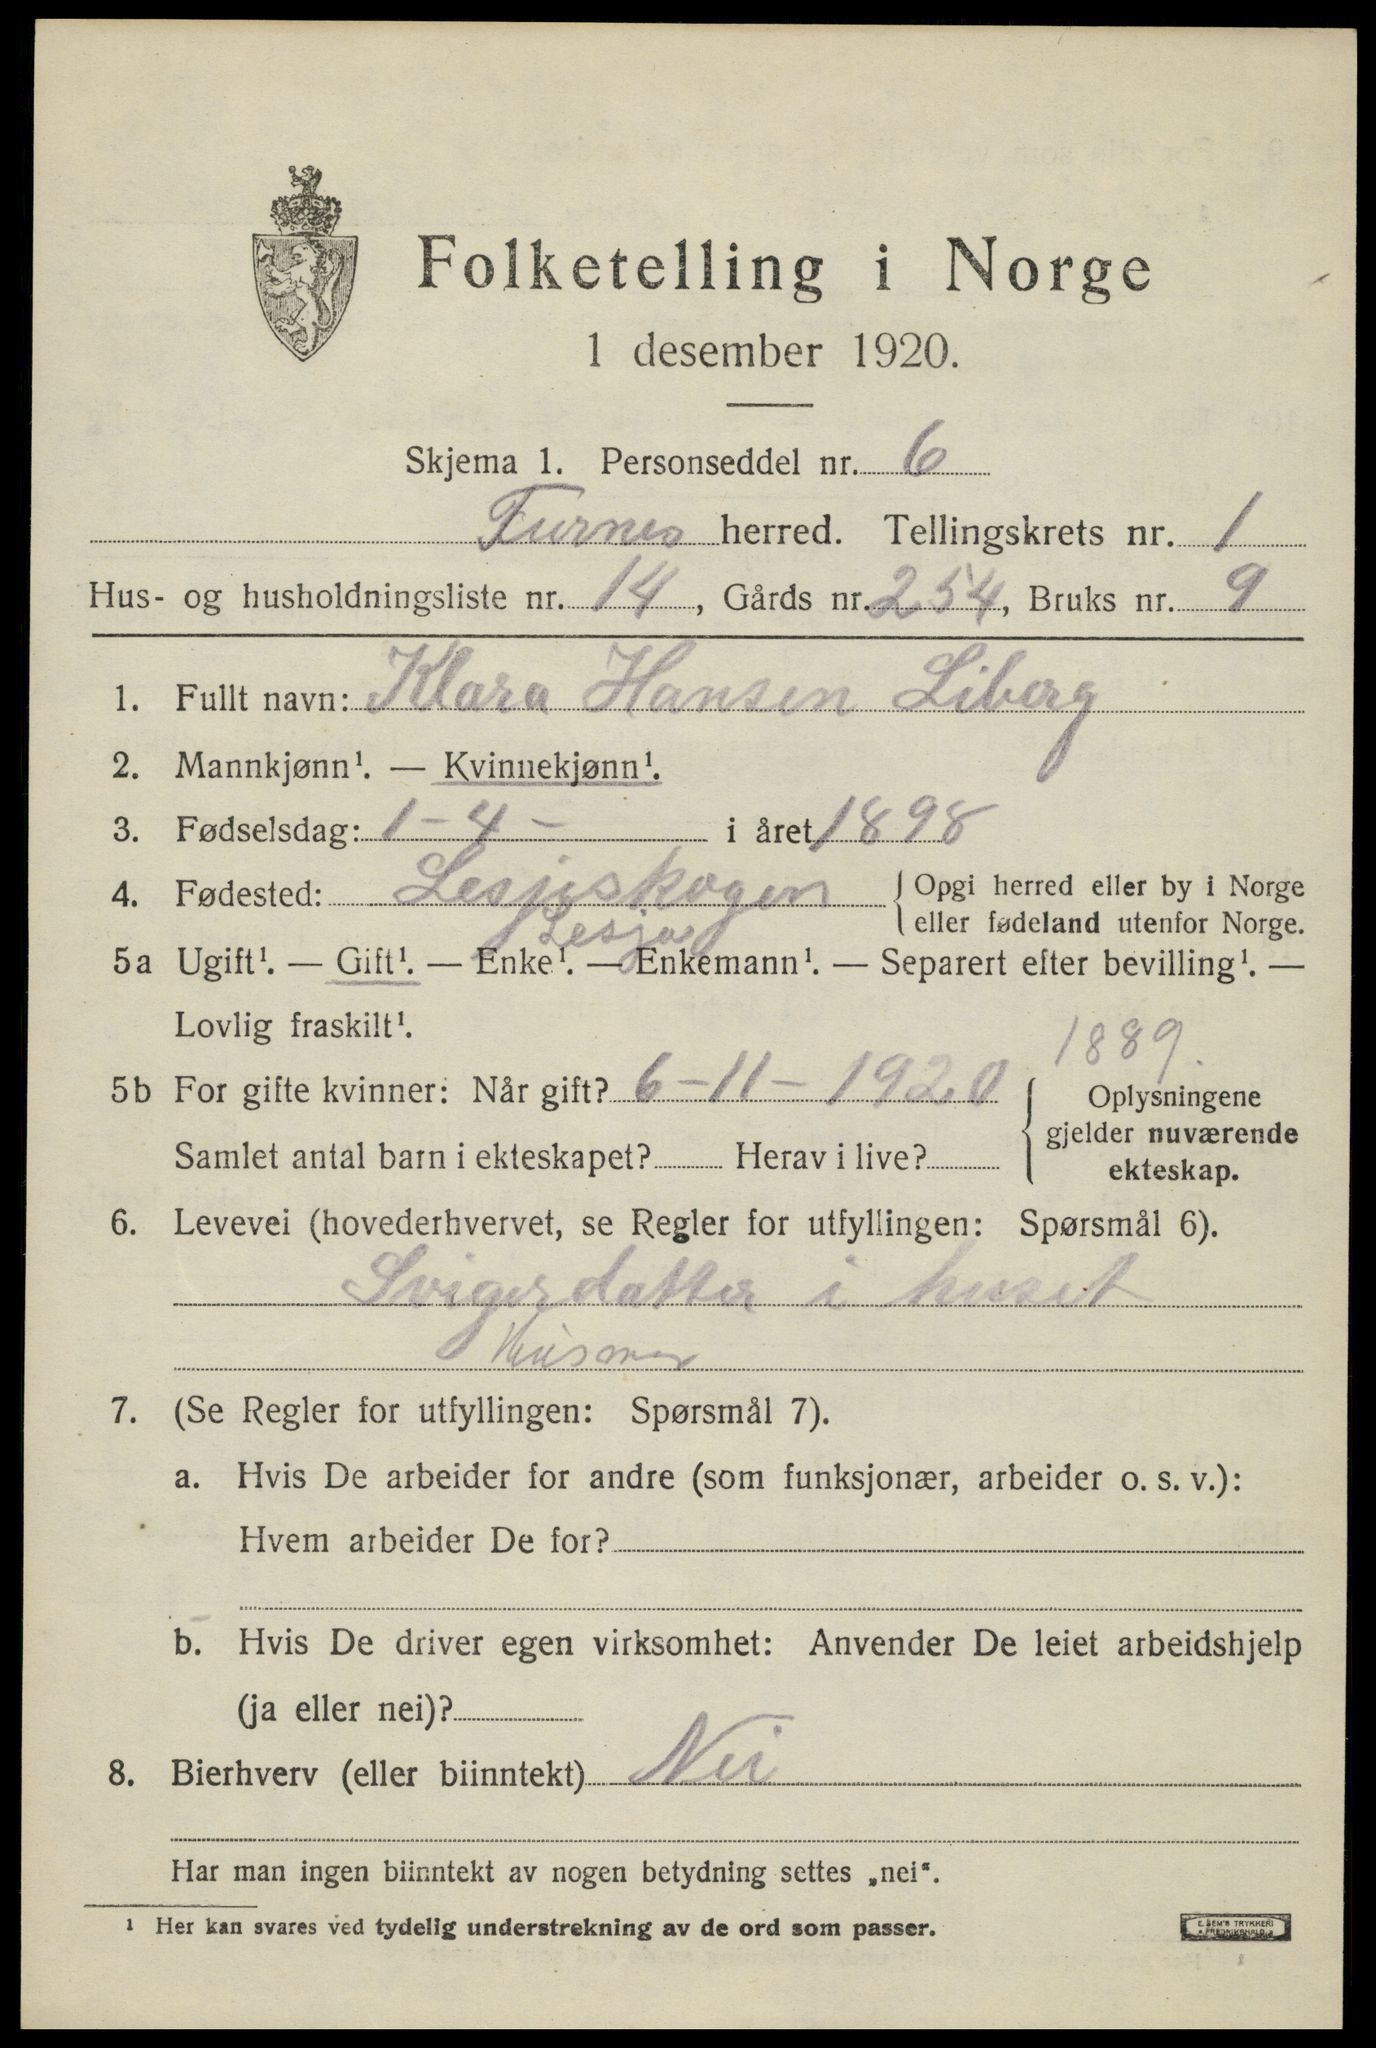 Folketelling i Norge
1 desember 1920.
Skjema 1. Personseddel nr. 6
Furnes herred. Tellingskrets nr. 1
Hus- og husholdningsliste nr. 14, Gårds nr. 254, Bruks nr. 9
1. Fullt navn: Klara Hansen Liberg
2. Mannkjønn¹. — Kvinnekjønn¹.
3. Fødselsdag: 1-4- i året 1898
4. Fødested: Lesjeskogen { Opgi herred eller by i Norge
eller fødeland utenfor Norge.
Lesja
5a Ugift¹. — Gift¹. — Enke¹. — Enkemann¹. — Separert efter bevilling¹. —
Lovlig fraskilt¹.
1889.
5b For gifte kvinner: Når gift? 6-11-1920
Oplysningene
gjelder nuværende
ekteskap.
Samlet antal barn i ekteskapet? Herav i live?
6. Levevei (hovederhvervet, se Regler for utfyllingen: Spørsmål 6).
Svigerdatter i huset
7. (Se Regler for utfyllingen: Spørsmål 7).
a. Hvis De arbeider for andre (som funksjonær, arbeider o. s. v.):
Hvem arbeider De for?
b. Hvis De driver egen virksomhet: Anvender De leiet arbeidshjelp
(ja eller nei)?
8. Bierhverv (eller biinntekt) Nei
Har man ingen biinntekt av nogen betydning settes „nei“.
¹ Her kan svares ved tydelig understrekning av de ord som passer.
E. SEM'S TRYKKERI
FREDRIKSHALD